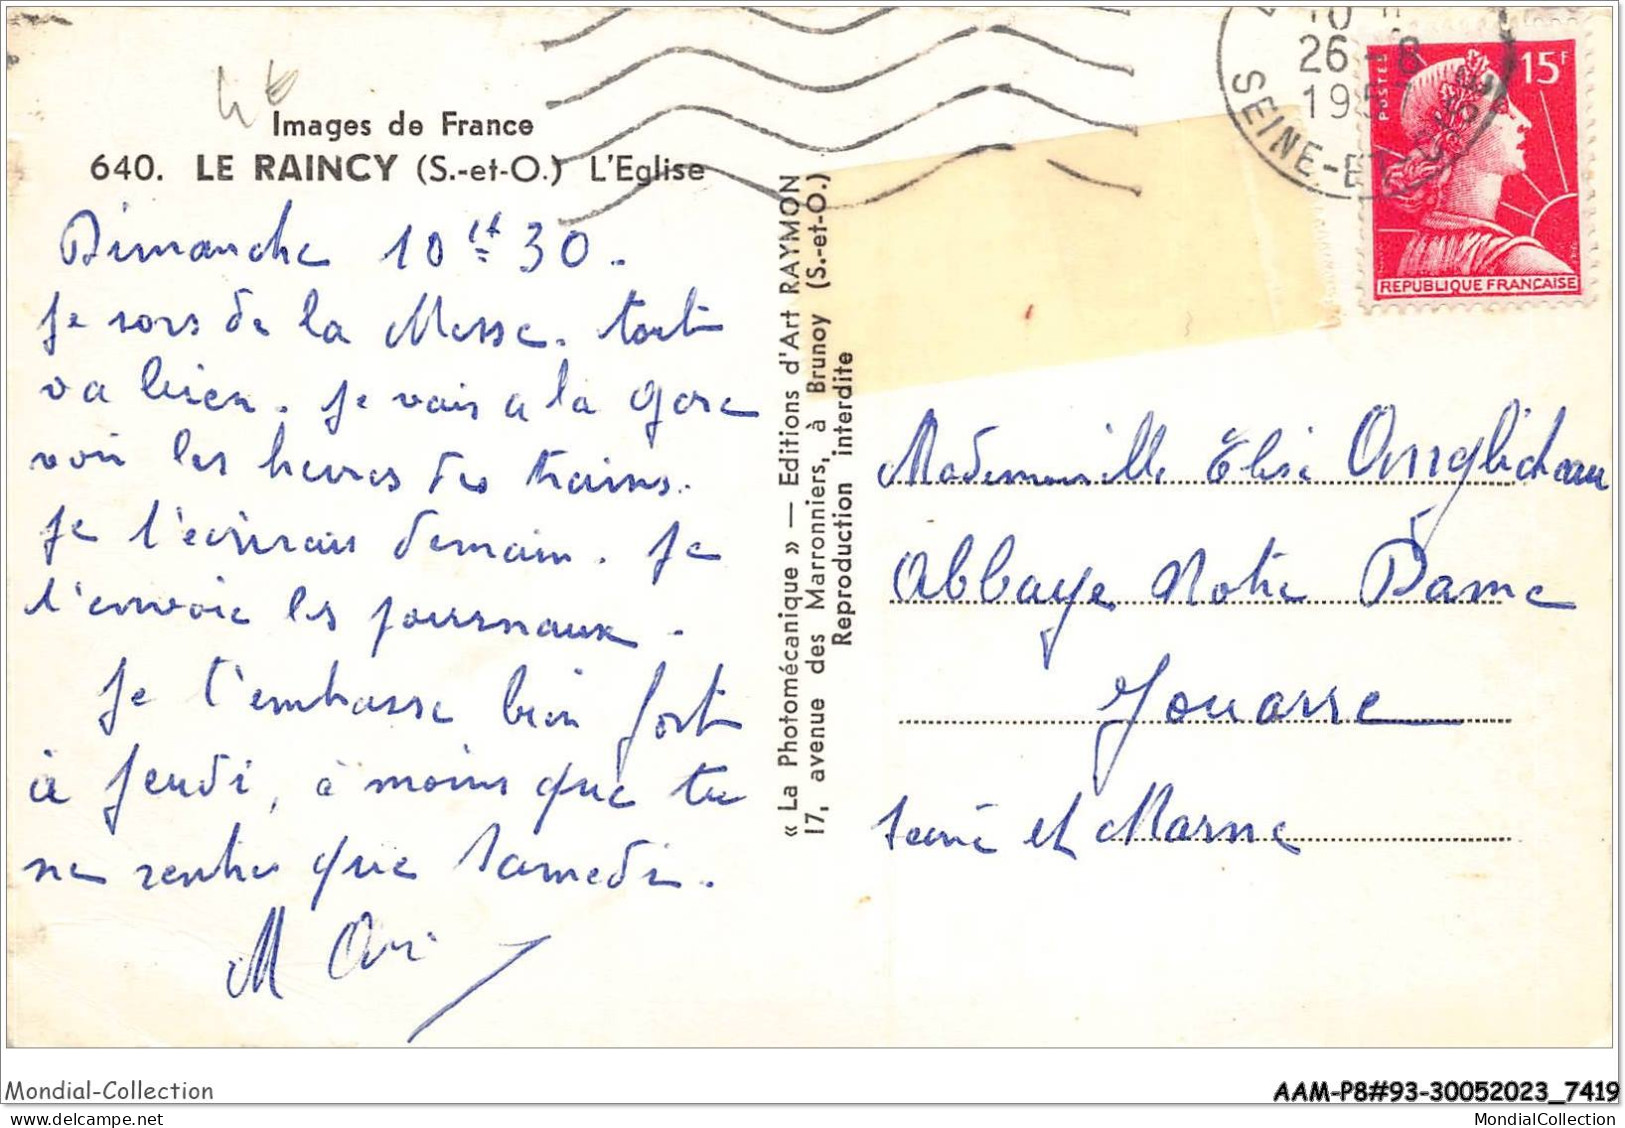 Images de France
640. LE RAINCY (S.-et-O.) L'Eglise
Dimanche 10 30.
Je sors de la Messe. tout
va bien. Je vais a la gare
voir les heures des trains.
Je t'écrirais demain. Je
t'envoie les journaux.
Je t'embrasse bien fort
à jeudi, à moins que tu
ne rentres que Samedi.
M
« La Photomécanique » — Editions d'Art RAYMON
17, avenue des Marronniers, à Brunoy (S.-et-O.)
Reproduction interdite
26 - 8
1957
SEINE-ET-
POSTES
15F
REPUBLIQUE FRANÇAISE
Mademoiselle Elise
Abbaye Notre Dame
Jouarre
Seine et Marne
Mondial-Collection
AAM-P8#93-30052023_7419
delcampe.net
MondialCollection